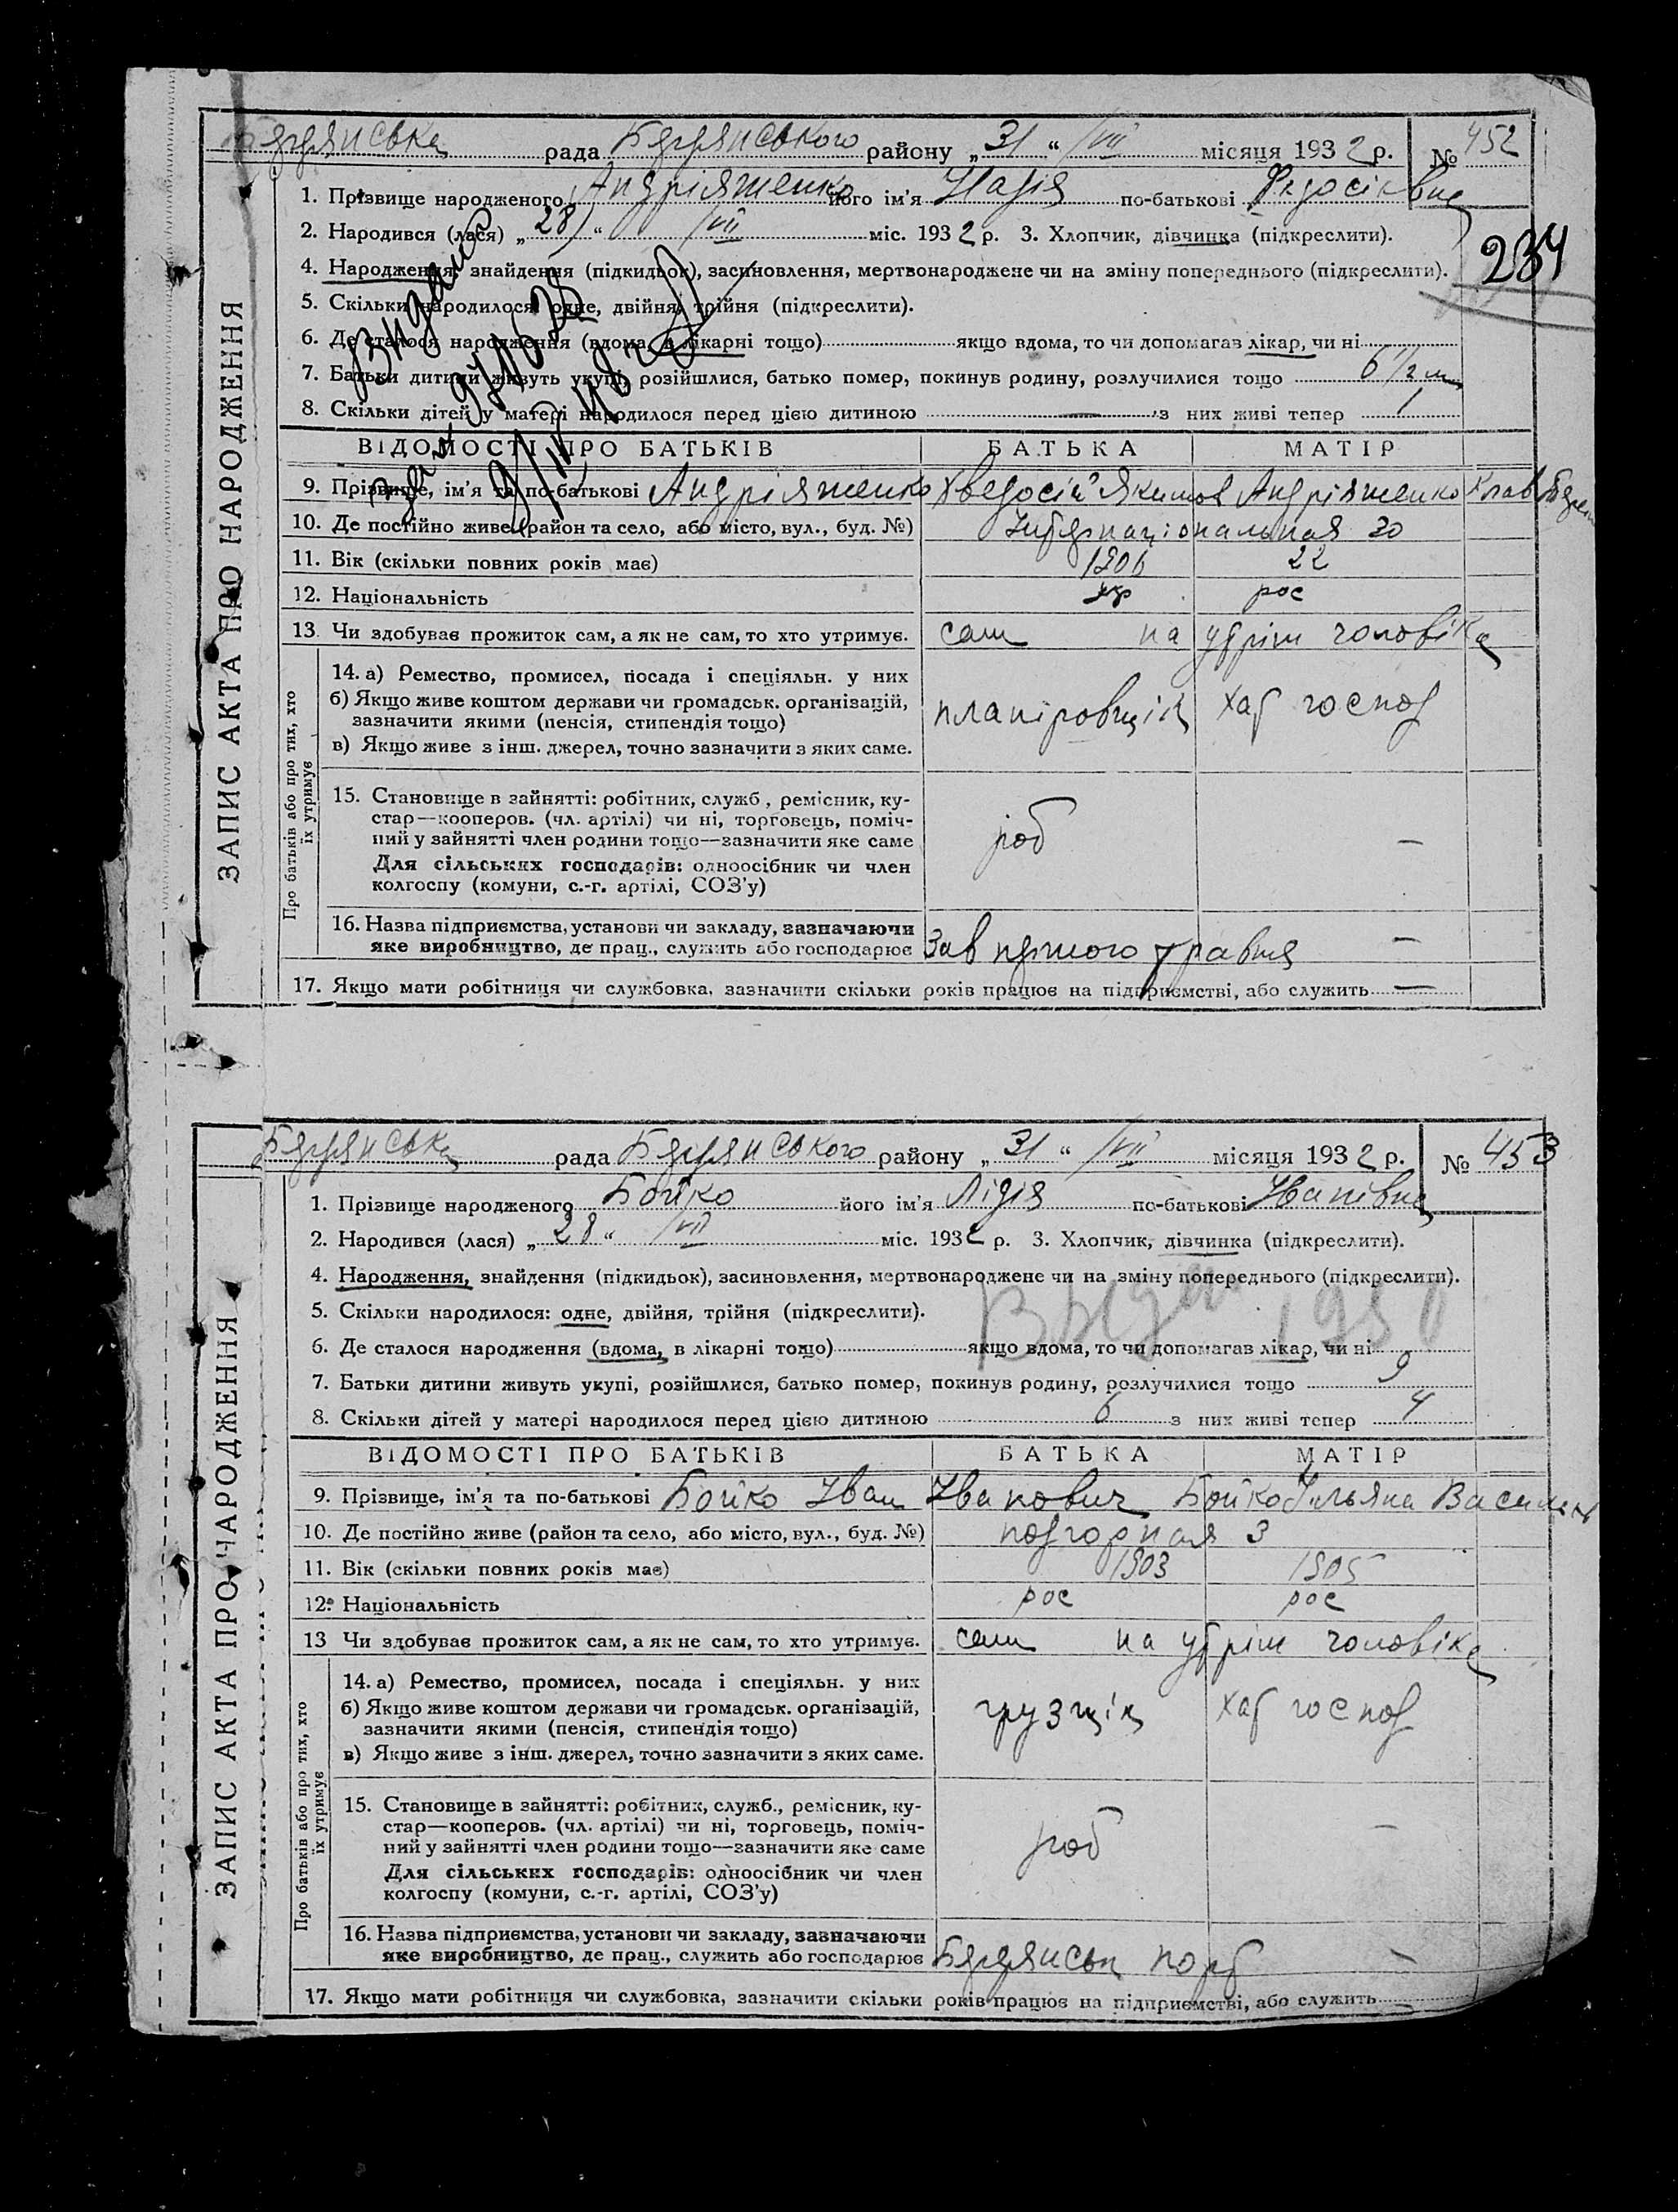 Бердянська рада Бердянського району „31“ /VII місяця 1932 р. № 452
1. Прізвище народженого Андріяшенко його ім'я Надія по-батькові Федосіївна
2. Народився (лася) „28“ /VII міс. 1932 р. 3. Хлопчик, дівчинка (підкреслити).
234
4. Народження, знайдення (підкидьок), засиновлення, мертвонароджене чи на зміну попереднього (підкреслити).
5. Скільки народилося: одне, двійня, трійня (підкреслити).
6. Де сталося народження (вдома, в лікарні тощо) якщо вдома, то чи допомагав лікар, чи ні
7. Батьки дитини живуть укупі, розійшлися, батько помер, покинув родину, розлучилися тощо 6 1/2 м
8. Скільки дітей у матері народилося перед цією дитиною — з них живі тепер 1
ВІДОМОСТІ ПРО БАТЬКІВ БАТЬКА МАТІР
9. Прізвище, ім'я та по-батькові Андріяшенко Хведосій Якимов Андріяшенко Клав
10. Де постійно живе (район та село, або місто, вул., буд. №) Інтернаціональная 20
11. Вік (скільки повних років має) 1906 22
12. Національність укр рос
13. Чи здобуває прожиток сам, а як не сам, то хто утримує. сам на утрім чоловіка
Про батьків або про тих, хто їх утримує
14. а) Ремество, промисел, посада і спеціяльн. у них
б) Якщо живе коштом держави чи громадськ. організацій,
зазначити якими (пенсія, стипендія тощо) планіровщік хат господ
в) Якщо живе з інш. джерел, точно зазначити з яких саме.
15. Становище в зайнятті: робітник, служб, ремісник, ку-
стар—кооперов. (чл. артілі) чи ні, торговець, поміч-
ний у зайнятті член родини тощо—зазначити яке саме роб —
Для сільських господарів: одноосібник чи член
колгоспу (комуни, с.-г. артілі, СОЗ'у)
16. Назва підприємства, установи чи закладу, зазначаючи
яке виробництво, де прац., служить або господарює Зав першого травня —
17. Якщо мати робітниця чи службовка, зазначити скільки років працює на підприємстві, або служить —
ЗАПИС АКТА ПРО НАРОДЖЕННЯ
Бердянська рада Бердянського району „31“ /VII місяця 1932 р. № 453
1. Прізвище народженого Бойко його ім'я Лідія по-батькові Іванівна
2. Народився (лася) „28“ /VII міс. 1932 р. 3. Хлопчик, дівчинка (підкреслити).
4. Народження, знайдення (підкидьок), засиновлення, мертвонароджене чи на зміну попереднього (підкреслити).
5. Скільки народилося: одне, двійня, трійня (підкреслити).
6. Де сталося народження (вдома, в лікарні тощо) якщо вдома, то чи допомагав лікар, чи ні
7. Батьки дитини живуть укупі, розійшлися, батько помер, покинув родину, розлучилися тощо 9
8. Скільки дітей у матері народилося перед цією дитиною 6 з них живі тепер 4
ВІДОМОСТІ ПРО БАТЬКІВ БАТЬКА МАТІР
9. Прізвище, ім'я та по-батькові Бойко Іван Іванович Бойко Ульяна
10. Де постійно живе (район та село, або місто, вул., буд. №) подгорная 3
11. Вік (скільки повних років має) 1903 1905
12. Національність рос рос
13 Чи здобуває прожиток сам, а як не сам, то хто утримує. сам на утрім чоловіка
Про батьків або про тих, хто їх утримує
14. а) Ремество, промисел, посада і спеціяльн. у них
б) Якщо живе коштом держави чи громадськ. організацій,
зазначити якими (пенсія, стипендія тощо) грузщік хат господ
в) Якщо живе з інш. джерел, точно зазначити з яких саме.
15. Становище в зайнятті: робітник, служб., ремісник, ку-
стар—кооперов. (чл. артілі) чи ні, торговець, поміч-
ний у зайнятті член родини тощо—зазначити яке саме роб —
Для сільських господарів: одноосібник чи член
колгоспу (комуни, с.-г. артілі, СОЗ'у)
16. Назва підприємства, установи чи закладу, зазначаючи
яке виробництво, де прац., служить або господарює Бердянськ порт —
17. Якщо мати робітниця чи службовка, зазначити скільки років працює на підприємстві, або служить —
ЗАПИС АКТА ПРО НАРОДЖЕННЯ